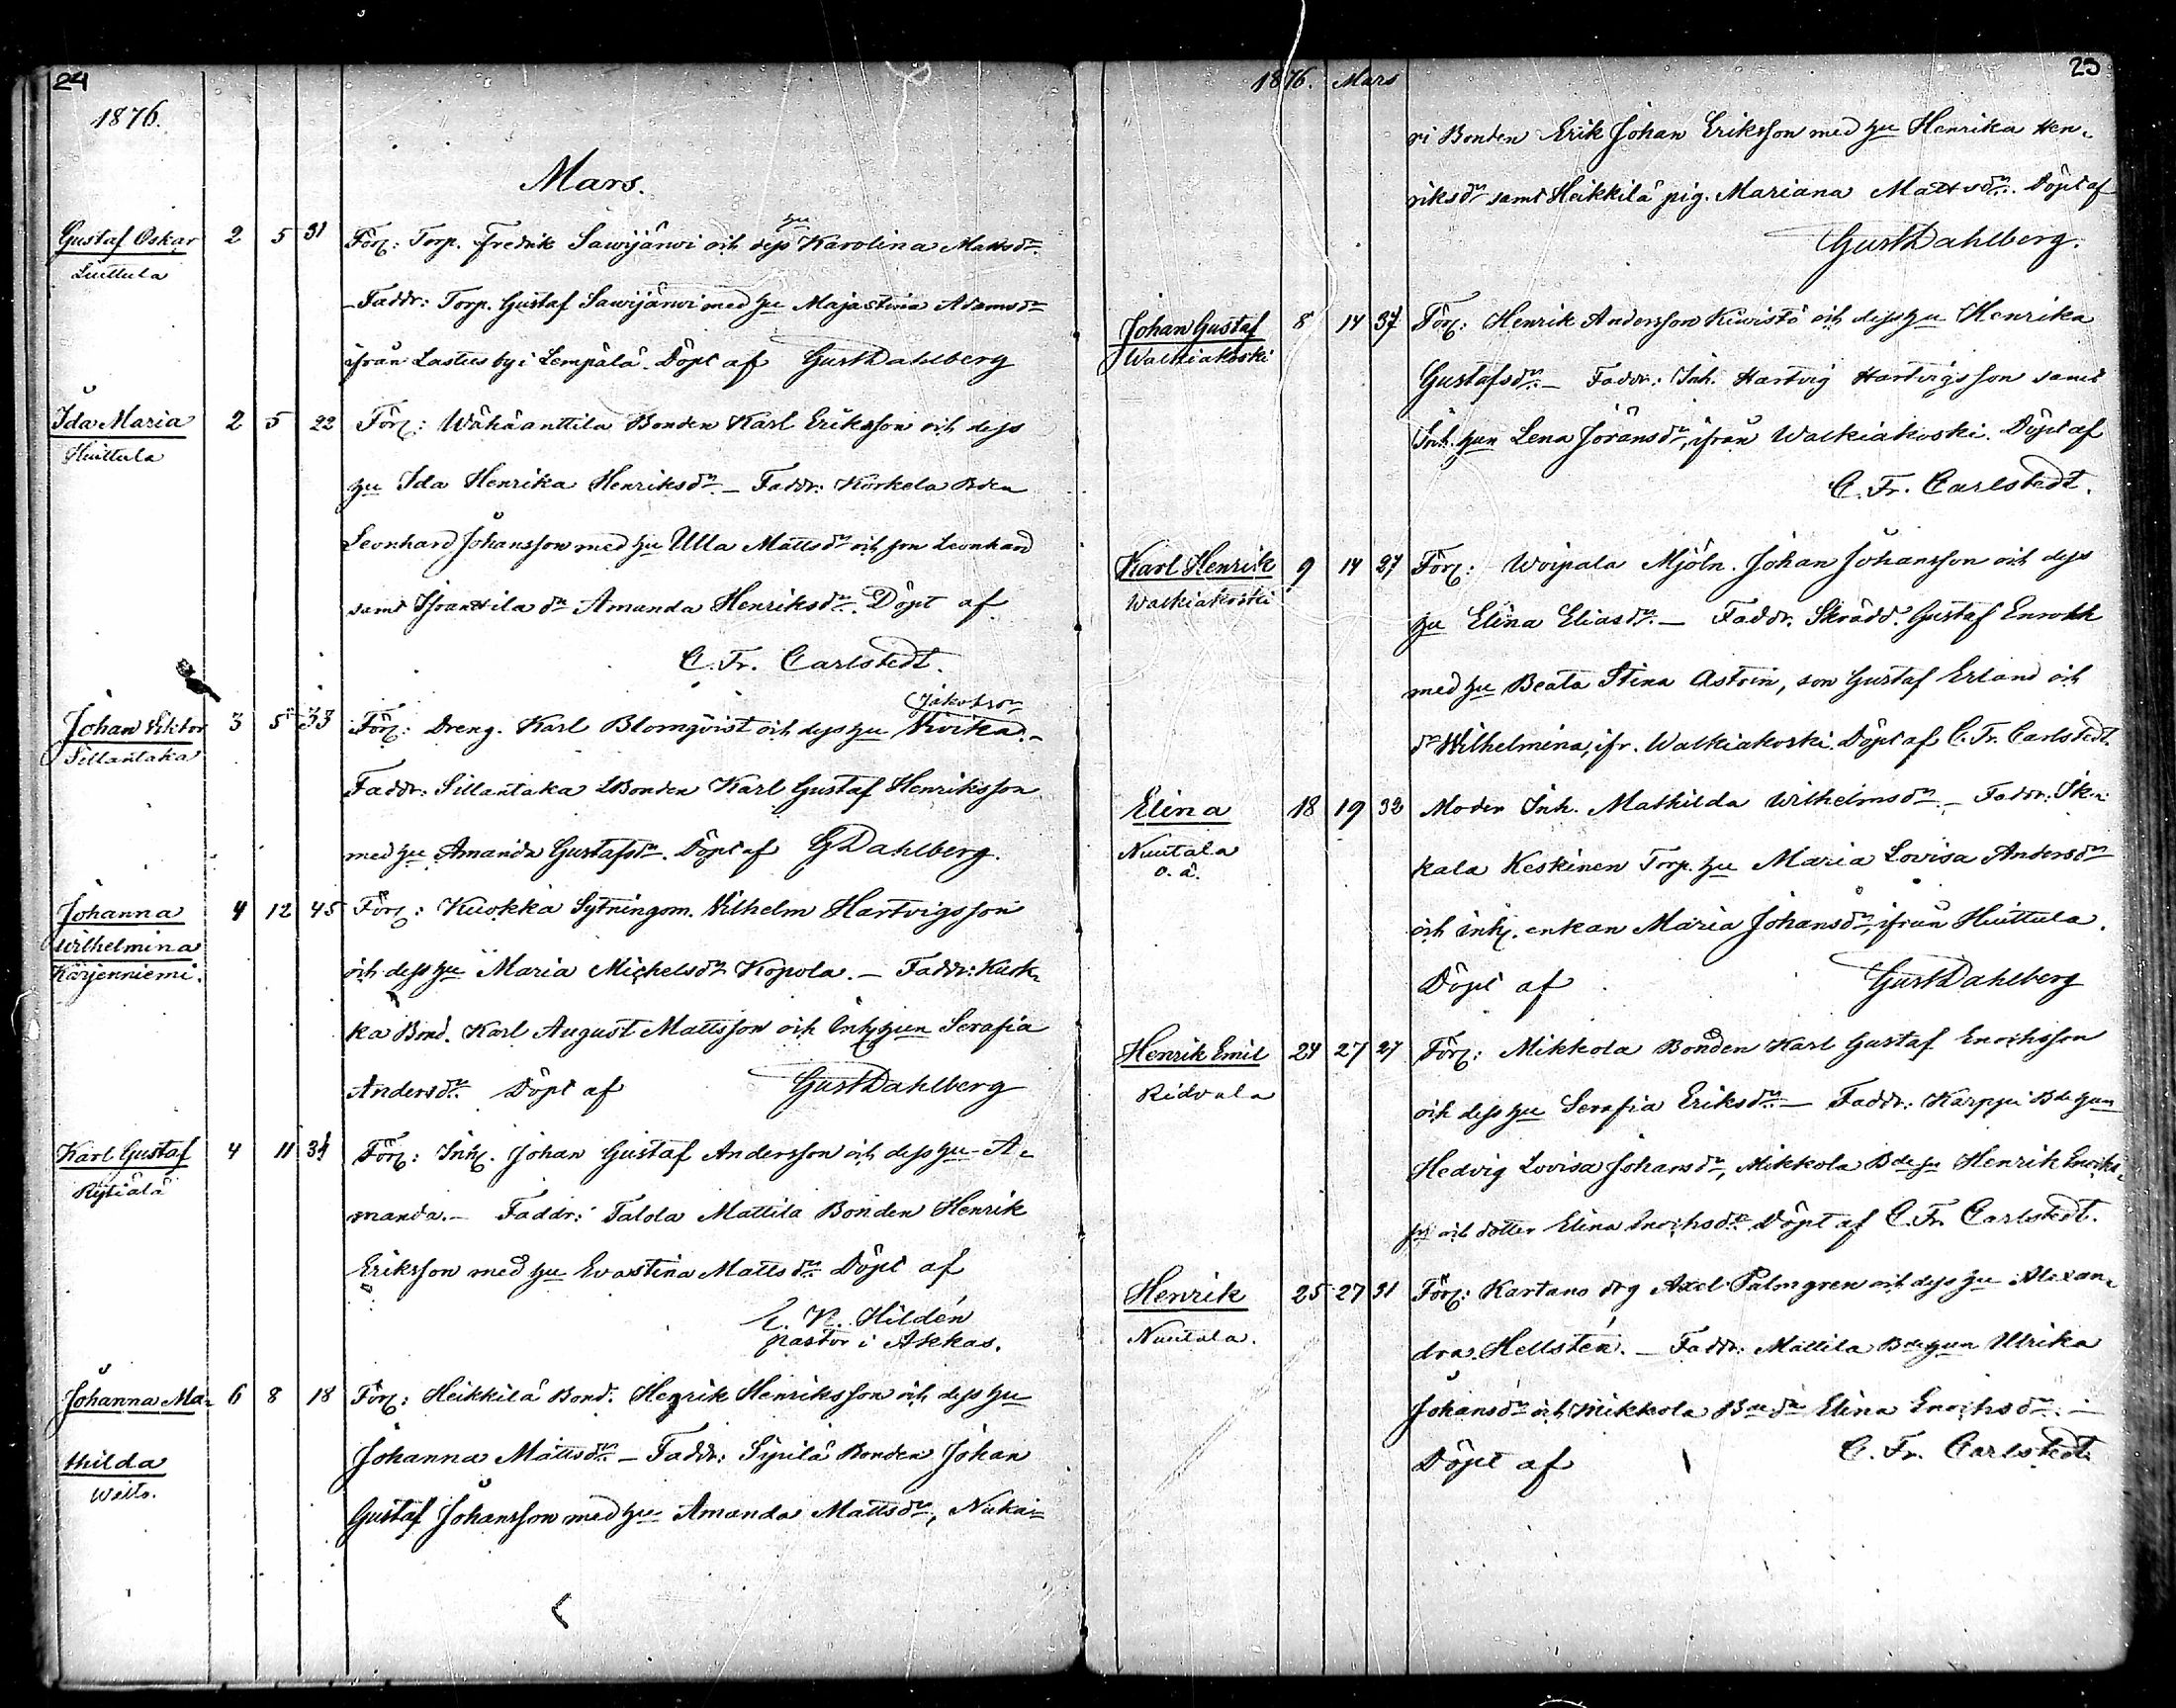 24
1876.
Mars.
Gustaf Oskar 2 5 31 Förs: Torp. Fredrik Sawijärwi och dess hu Karolina Mattsdr.
Luittula
Faddr: Torp. Gustaf Sawijärwi med hu Majastina Adamsdr
ifrån Lastus by i Lempälä. Döpt af Gust Dahlberg
Ida Maria 2 5 22 Förs: Wähäanttila Bonden Karl Eriksson och dess
Huittula
hu Ida Henrika Henriksdr. – Faddr: Korkela Bden
Leonhard Johansson med hu Ulla Mattsdr och son Leonhard
samt dr Amanda Henriksdr. Döpt af
C. Fr. Carlstedt.
Johan Viktor 3 5 33 Förs: Dreng. Karl Blomqvist och dess hu Vivika Jakobsdr. –
Sillantaka
Faddr: Sillantaka LBonden Karl Gustaf Henriksson
med hu Amanda Gustafsdr. Döpt af G Dahlberg.
Johanna 4 12 45 Förs: Kuokka Sytningsm. Wilhelm Hartvigsson
Wilhelmina
Kärjenniemi.
och dess hu Maria Michelsdr Kopola. – Faddr: Kuok-
ka Bond. Karl August Mattsson och Inh hun Serafia
Andersdr. Döpt af Gust Dahlberg
Karl Gustaf 4 11 34 Förs: Inh. Johan Gustaf Andersson och dess hu A-
Rytiälä
manda. – Faddr: Talola Mattila Bonden Henrik
Eriksson med hu Evastina Mattsdr. Döpt af
K. Hildén
pastor i Akkas.
Johanna Ma- 6 8 18 Förs: Heikkilä Bond. Henrik Henriksson och dess hu
thilda
Johanna Mattsdr. – Faddr: Sipilä Bonden Johan
Gustaf Johansson med hu Amanda Mattsdr, Nukai-
1876. Mars 25
ri Bonden Erik Johan Eriksson med hu Henrika Hen-
riksdr samt Heikkilä pig. Mariana Mattsdr. Döpt af
Gust Dahlberg.
Johan Gustaf 8 14 37 Förs: Henrik Andersson Kiwistö och dess hu Henrika
Walkiakoski
Gustafsdr. – Faddr: Inh. Hartvig Hartvigsson samt
Inh. hun Lena Göransdr, ifrån Walkiakoski. Döpt af
C. Fr. Carlstedt.
Karl Henrik 9 14 27 Förs: Woipala Mjöln. Johan Johansson och dess
Walkiakoski
hu Elina Eliasdr. – Faddr. Skrädd. Gustaf Enroth
med hu Beata Stina Astrin, son Gustaf Erland och
dr Wilhelmina, ifr. Walkiakoski. Döpt af C. Fr. Carlstedt.
Elina 18 19 32 Moder Inh. Mathilda Wilhelmsdr. – Faddr: Sk-
Nuutala
o. ä.
kala Keskinen Torp. hu Maria Lovisa Andersdr
och inh. enkan Maria Johansdr, ifrån Huittula.
Döpt af Gust Dahlberg
Henrik Emil 24 27 27 Förs: Mikkola Bonden Karl Gustaf Enochsson
Ridvala
och dess hu Serafia Eriksdr. – Faddr: Karppi Bde hun
Hedvig Lovisa Johansdr, Mikkola Bde Henrik Enochs-
son och dotter Elina Enochsdr. Döpt af C. Fr. Carlstedt.
Henrik 25 27 31 Förs: Kartano drg Axel Palmgren och dess hu Alexan-
Nuutala.
dra Hellstén. – Faddr: Mattila Bde hun Ulrika
Johansdr och Mikkola Bde dr Elina Enochsdr. –
Döpt af C. Fr. Carlstedt.